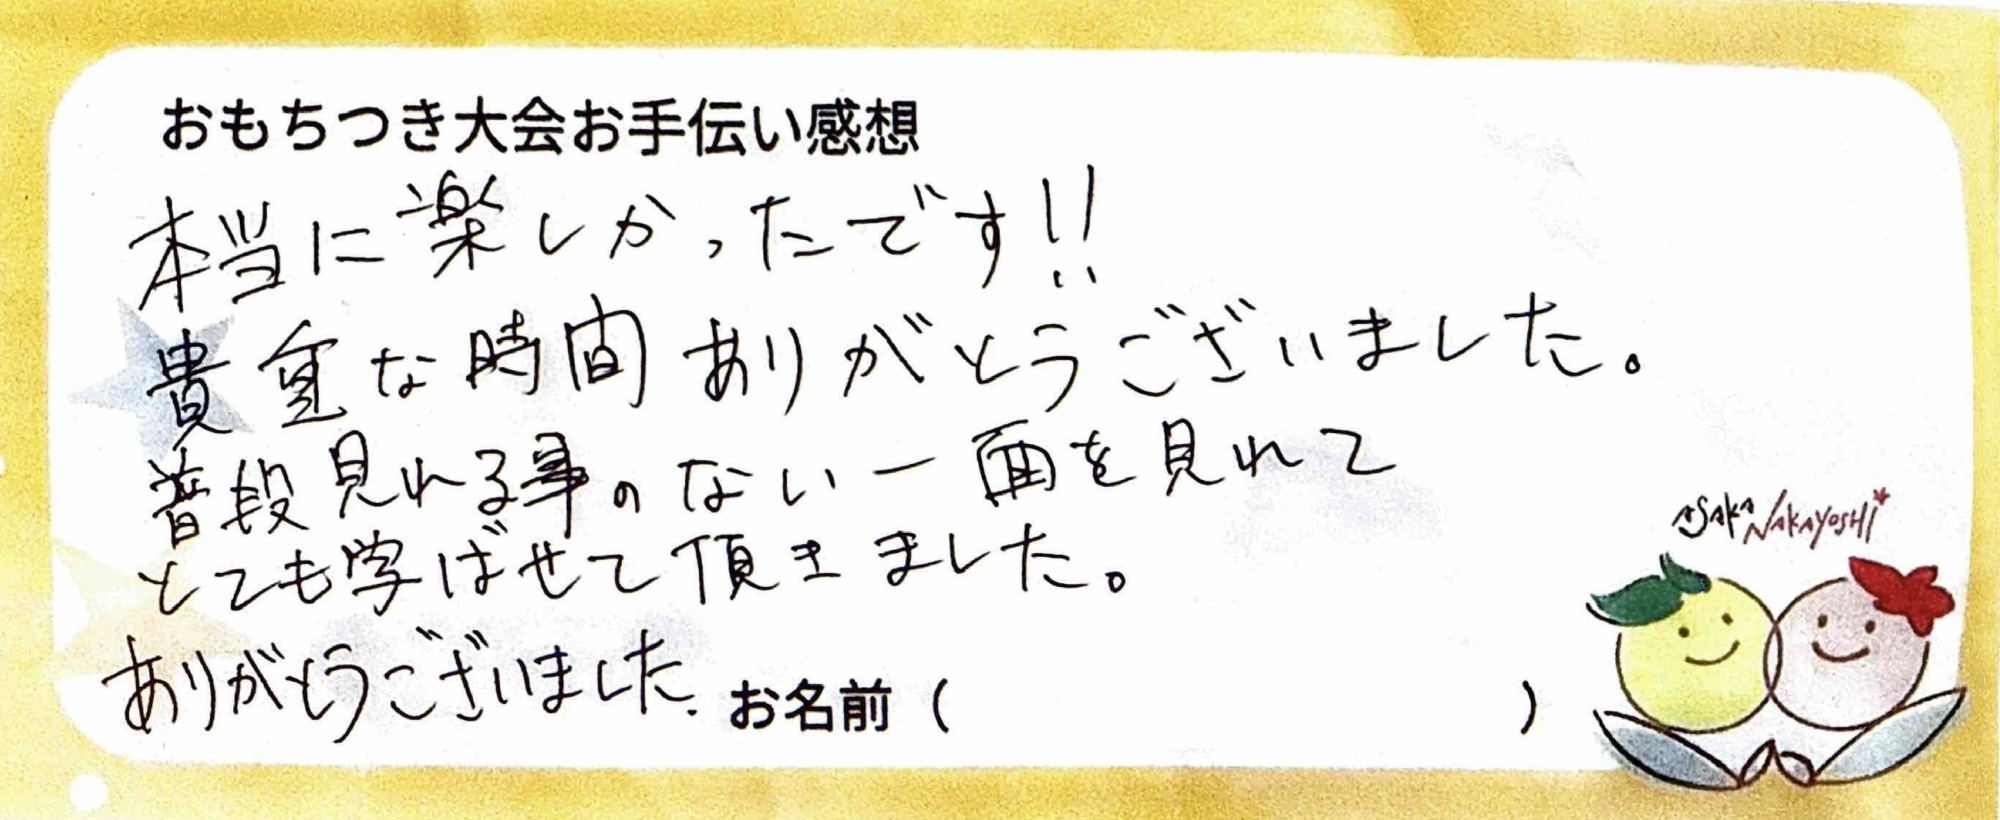 おもちつき大会お手伝い感想
本当に楽しかったです!!
貴重な時間ありがとうございました。
普段見れる事のない一面を見れて
とても学ばせて頂きました。
ありがとうございました.
お名前（　　　　　　　　　　）
ASAKA NAKAYOSHI